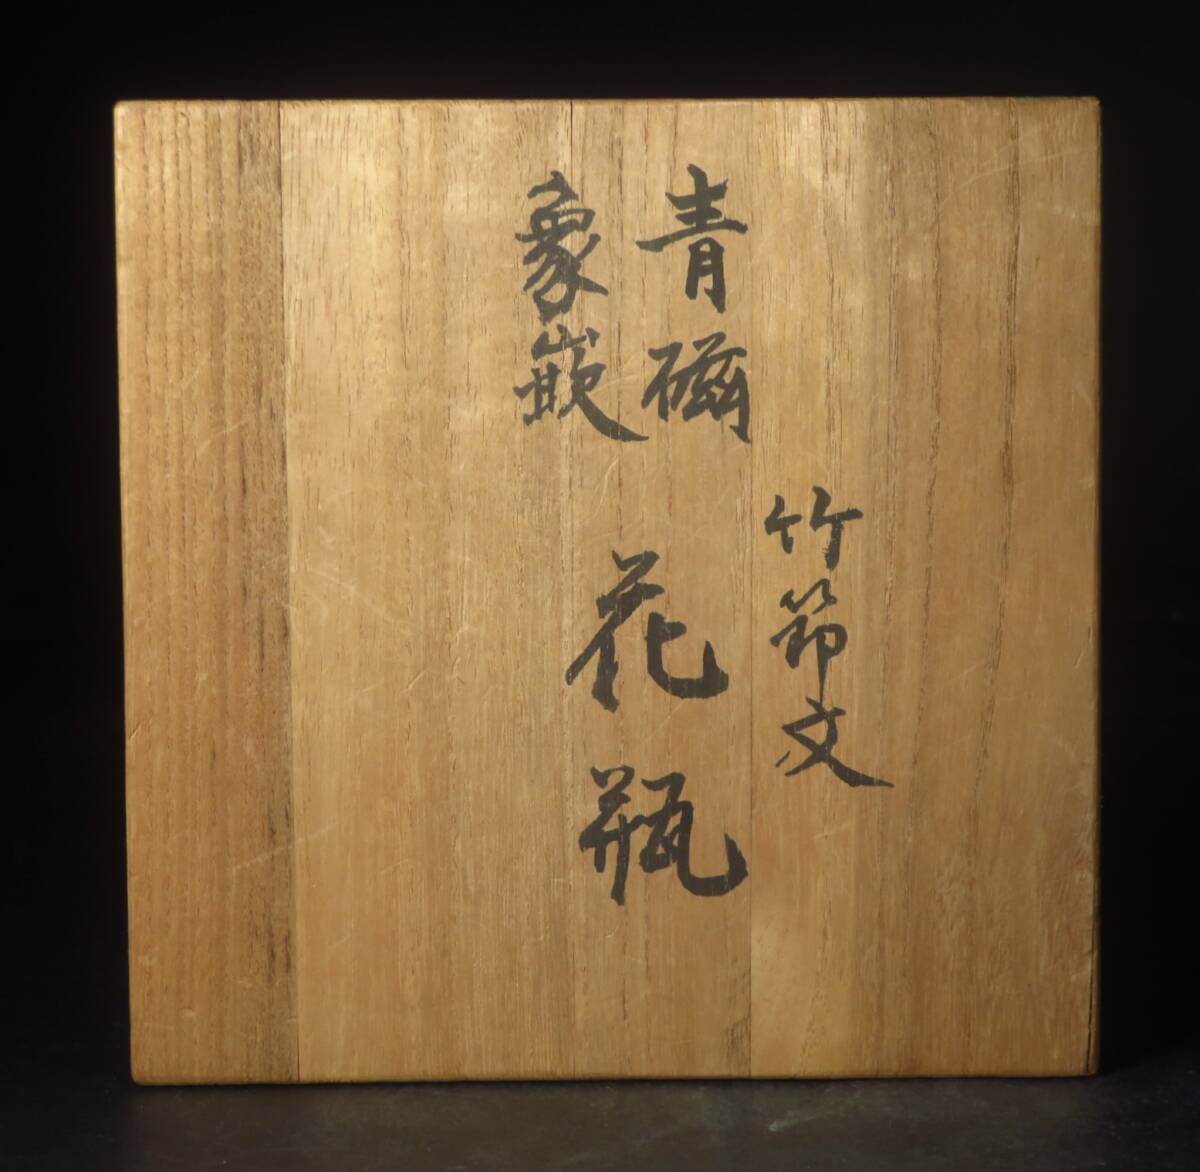 竹節文
青磁
象嵌
花瓶